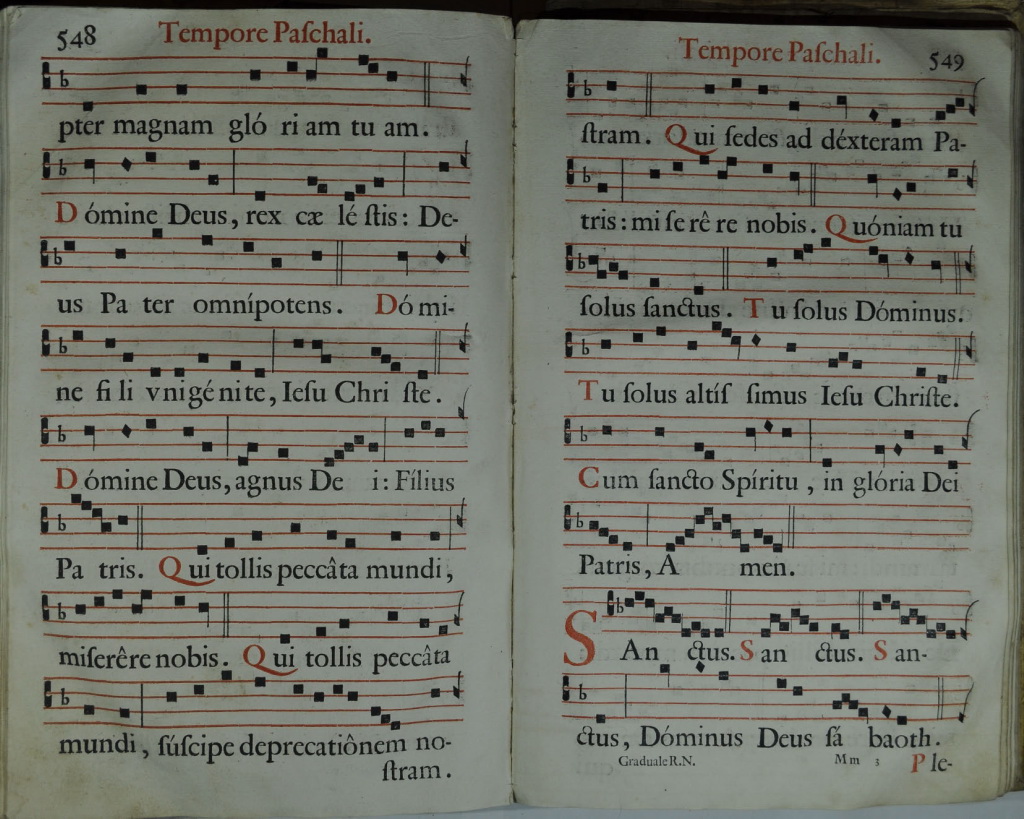 548
Tempore Paſchali.
pter magnam gló ri am tu am.
Dómine Deus, rex cæ lé ſtis: De-
us Pa ter omnípotens. Dó mi-
ne fi li vnigé ni te, Ieſu Chri ſte.
Dómine Deus, agnus De i: Fílius
Pa tris. Qui tollis peccâta mundi,
miſerêre nobis. Qui tollis peccâta
mundi, ſúſcipe deprecatiônem no-
ſtram.
Tempore Paſchali.
549
ſtram. Qui ſedes ad déxteram Pa-
tris: mi ſe rê re nobis. Quóniam tu
ſolus ſanctus. Tu ſolus Dóminus.
Tu ſolus altíſ ſimus Ieſu Chriſte.
Cum ſancto Spíritu, in glória Dei
Patris, A men.
SAn ctus. San ctus. San-
ctus, Dóminus Deus ſá baoth.
Graduale R.N. Mm 3 Ple-